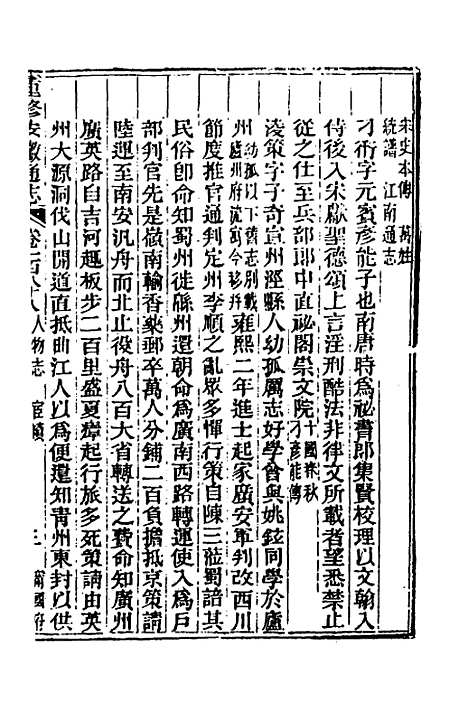 宋史本傳 萬姓
統譜 江南通志
刁衎字元賓彥能子也南唐時爲祕書郎集賢校理以文翰入
侍後入宋獻聖德頌上言淫刑酷法非律文所載者望悉禁止
從之仕至兵部郎中直祕閣崇文院十國春秋
刁彥能傳
凌策字子奇宣州涇縣人幼孤厲志好學曾與姚鉉同學於廬
州幼孤以下舊志別載
廬州府流寓今移幷雍熙二年進士起家廣安軍判改西川
節度推官通判定州李順之亂衆多憚行策自陳三蒞蜀諳其
民俗卽命知蜀州徙緜州還朝命爲廣南西路轉運使入爲戶
部判官先是嶺南輸香藥郵卒萬人分鋪二百負擔抵京策請
陸運至南安汎舟而北止役舟八百大省轉送之費命知廣州
廣英路自吉河趣板步二百里盛夏瘴起行旅多死策請由英
州大源洞伐山開道直抵曲江人以爲便還知靑州東封以供
重修安徽通志 卷一百八十八 人物志 宦績 三 甯國府